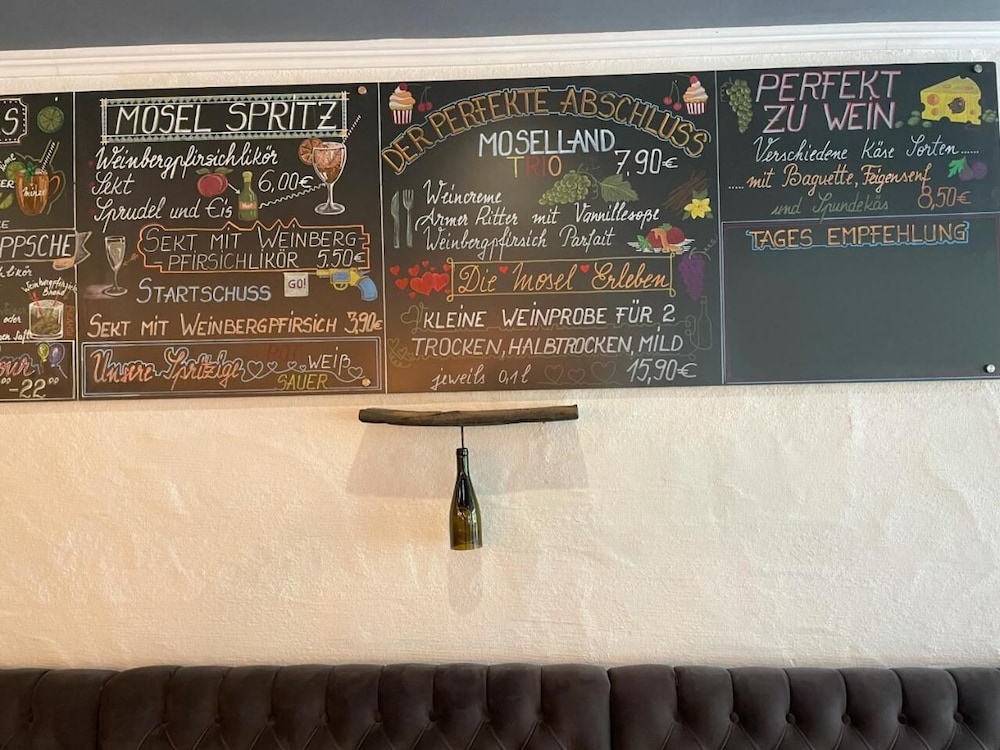 MOSEL SPRITZ
Weinbergpfirsichlikör
Sekt 6,00€
Sprudel und Eis
SEKT MIT WEINBERG-
-PFIRSICHLIKÖR 5,50€
STARTSCHUSS GO!
SEKT MIT WEINBERGPFIRSICH 3,90€
Unsere Spritzige ROT WEIß
SAUER
PPSCHE
hlikör
Weinbergpfirsich
Brand
oder
-22.00
DER PERFEKTE ABSCHLUSS
MOSELLAND
TRIO 7,90€
Weincreme
Armer Ritter mit Vannillesoße
Weinbergpfirsich Parfait
Die Mosel Erleben
KLEINE WEINPROBE FÜR 2
TROCKEN, HALBTROCKEN, MILD
jeweils 0,1 l 15,90€
PERFEKT
ZU WEIN.
Verschiedene Käse Sorten......
.... mit Baguette, Feigensenf
und Spundekäs 8,50€
TAGES EMPFEHLUNG